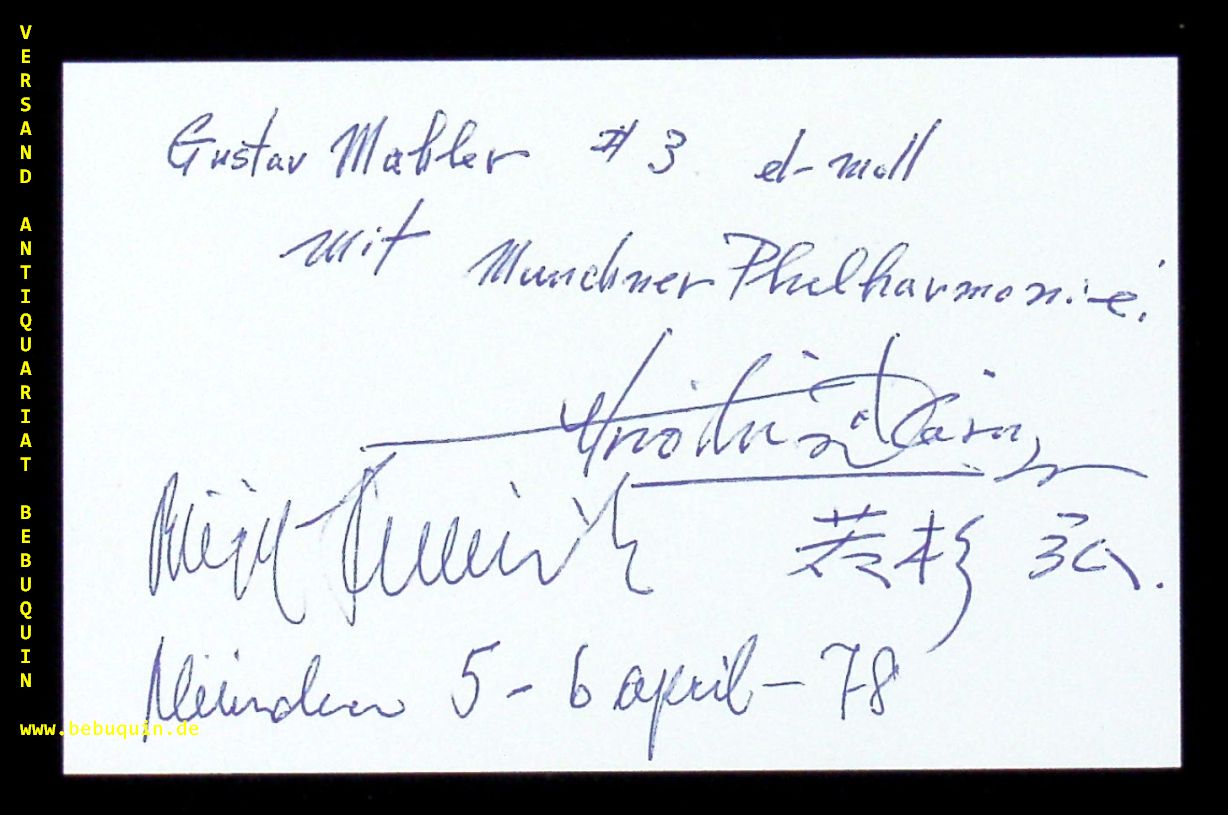 VERSAND ANTIQUARIAT BEBUQUIN
Gustav Mahler # 3 d-moll
mit Munchner Philharmonie.
若杉 弘.
München 5 - 6 april - 78
www.bebuquin.de